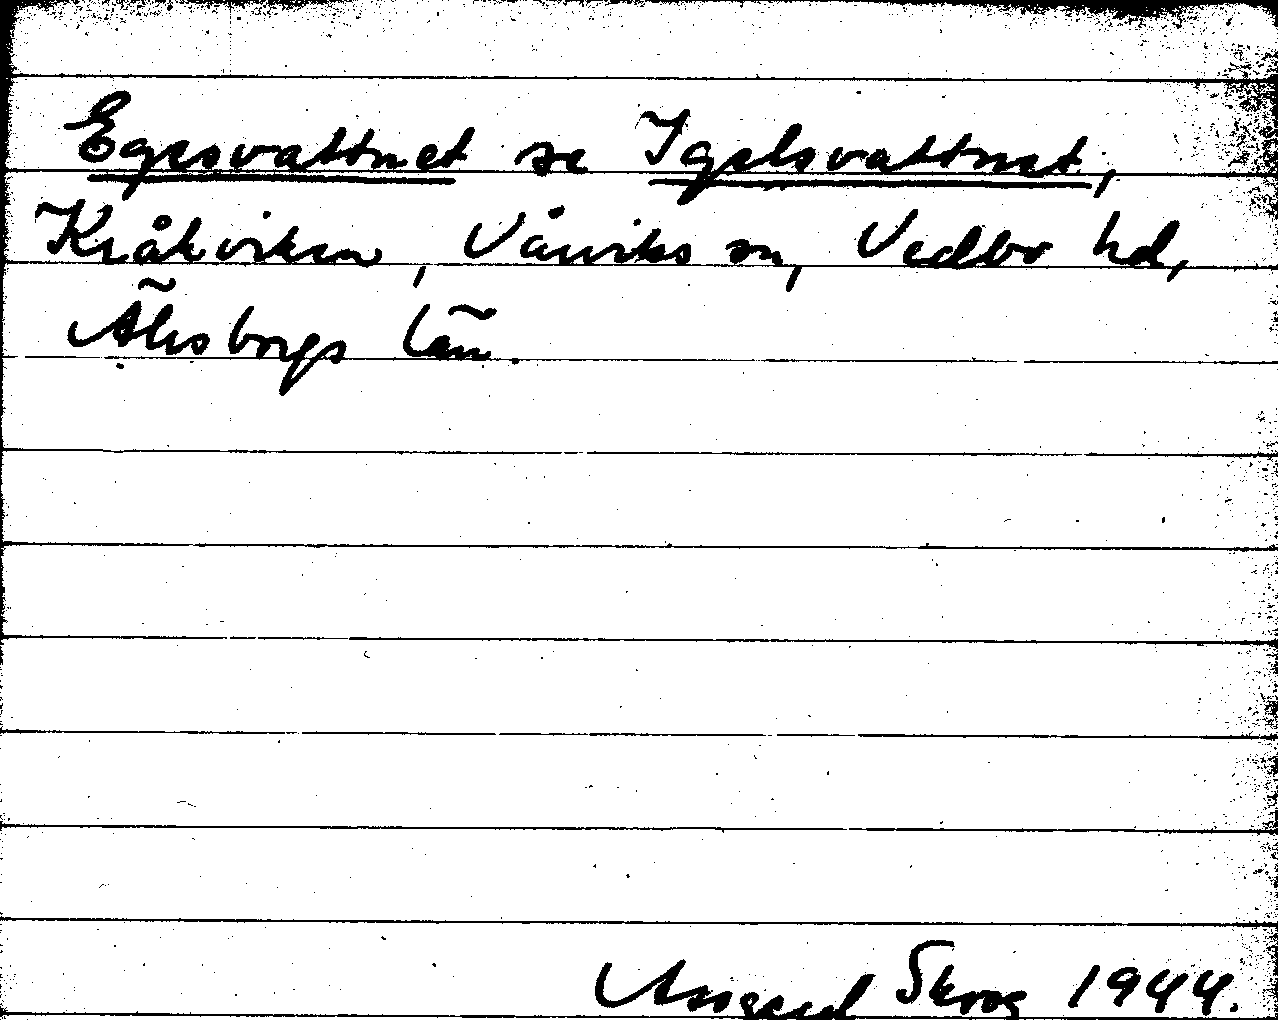 Egesvattnet se Igelsvattnet,
Kråkviken, Vårviks sn, Vedbo hd,
Älvsborgs län.
Assar Skog 1944.